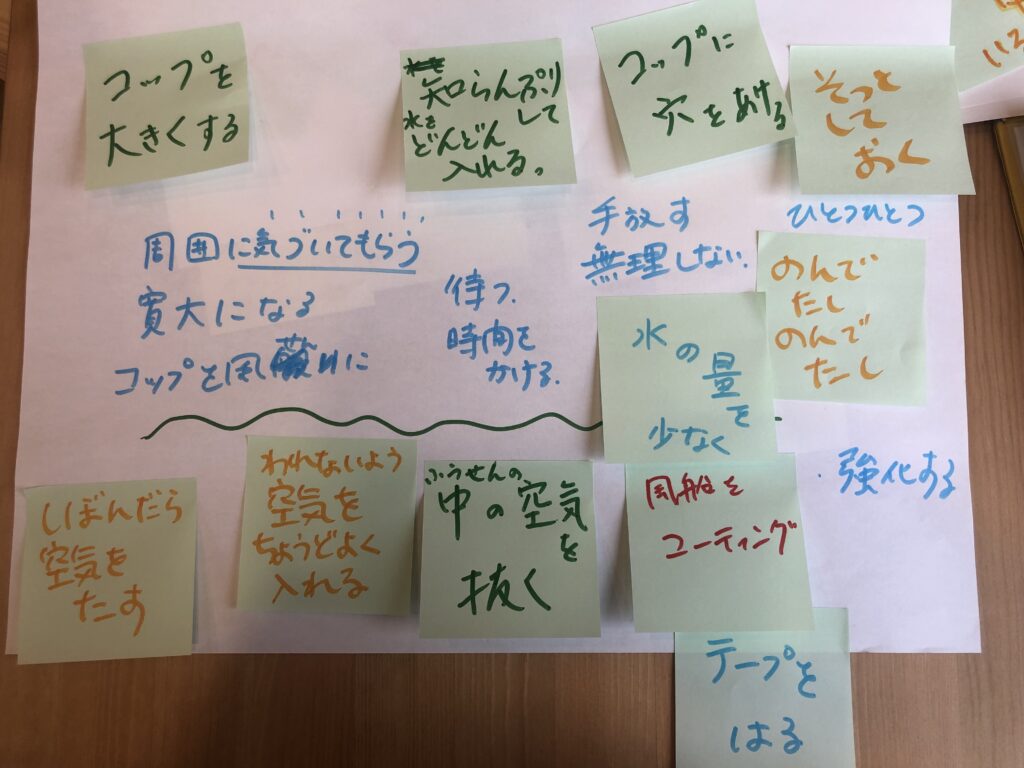 コップを
大きくする
知らんぷり
して
水を
どんどん
入れる。
コップに
穴をあける
そっと
して
おく
周囲に気づいてもらう
寛大になる
コップと風
りに
待つ.
時間を
かける.
手放す
無理しない.
ひとつひとつ
のんで
たし
のんで
たし
水の量を
少なく
・強化する
しぼんだら
空気を
たす
われないよう
空気を
ちょうどよく
入れる
ふうせんの
中の空気を
抜く
風船を
コーティング
テープを
はる